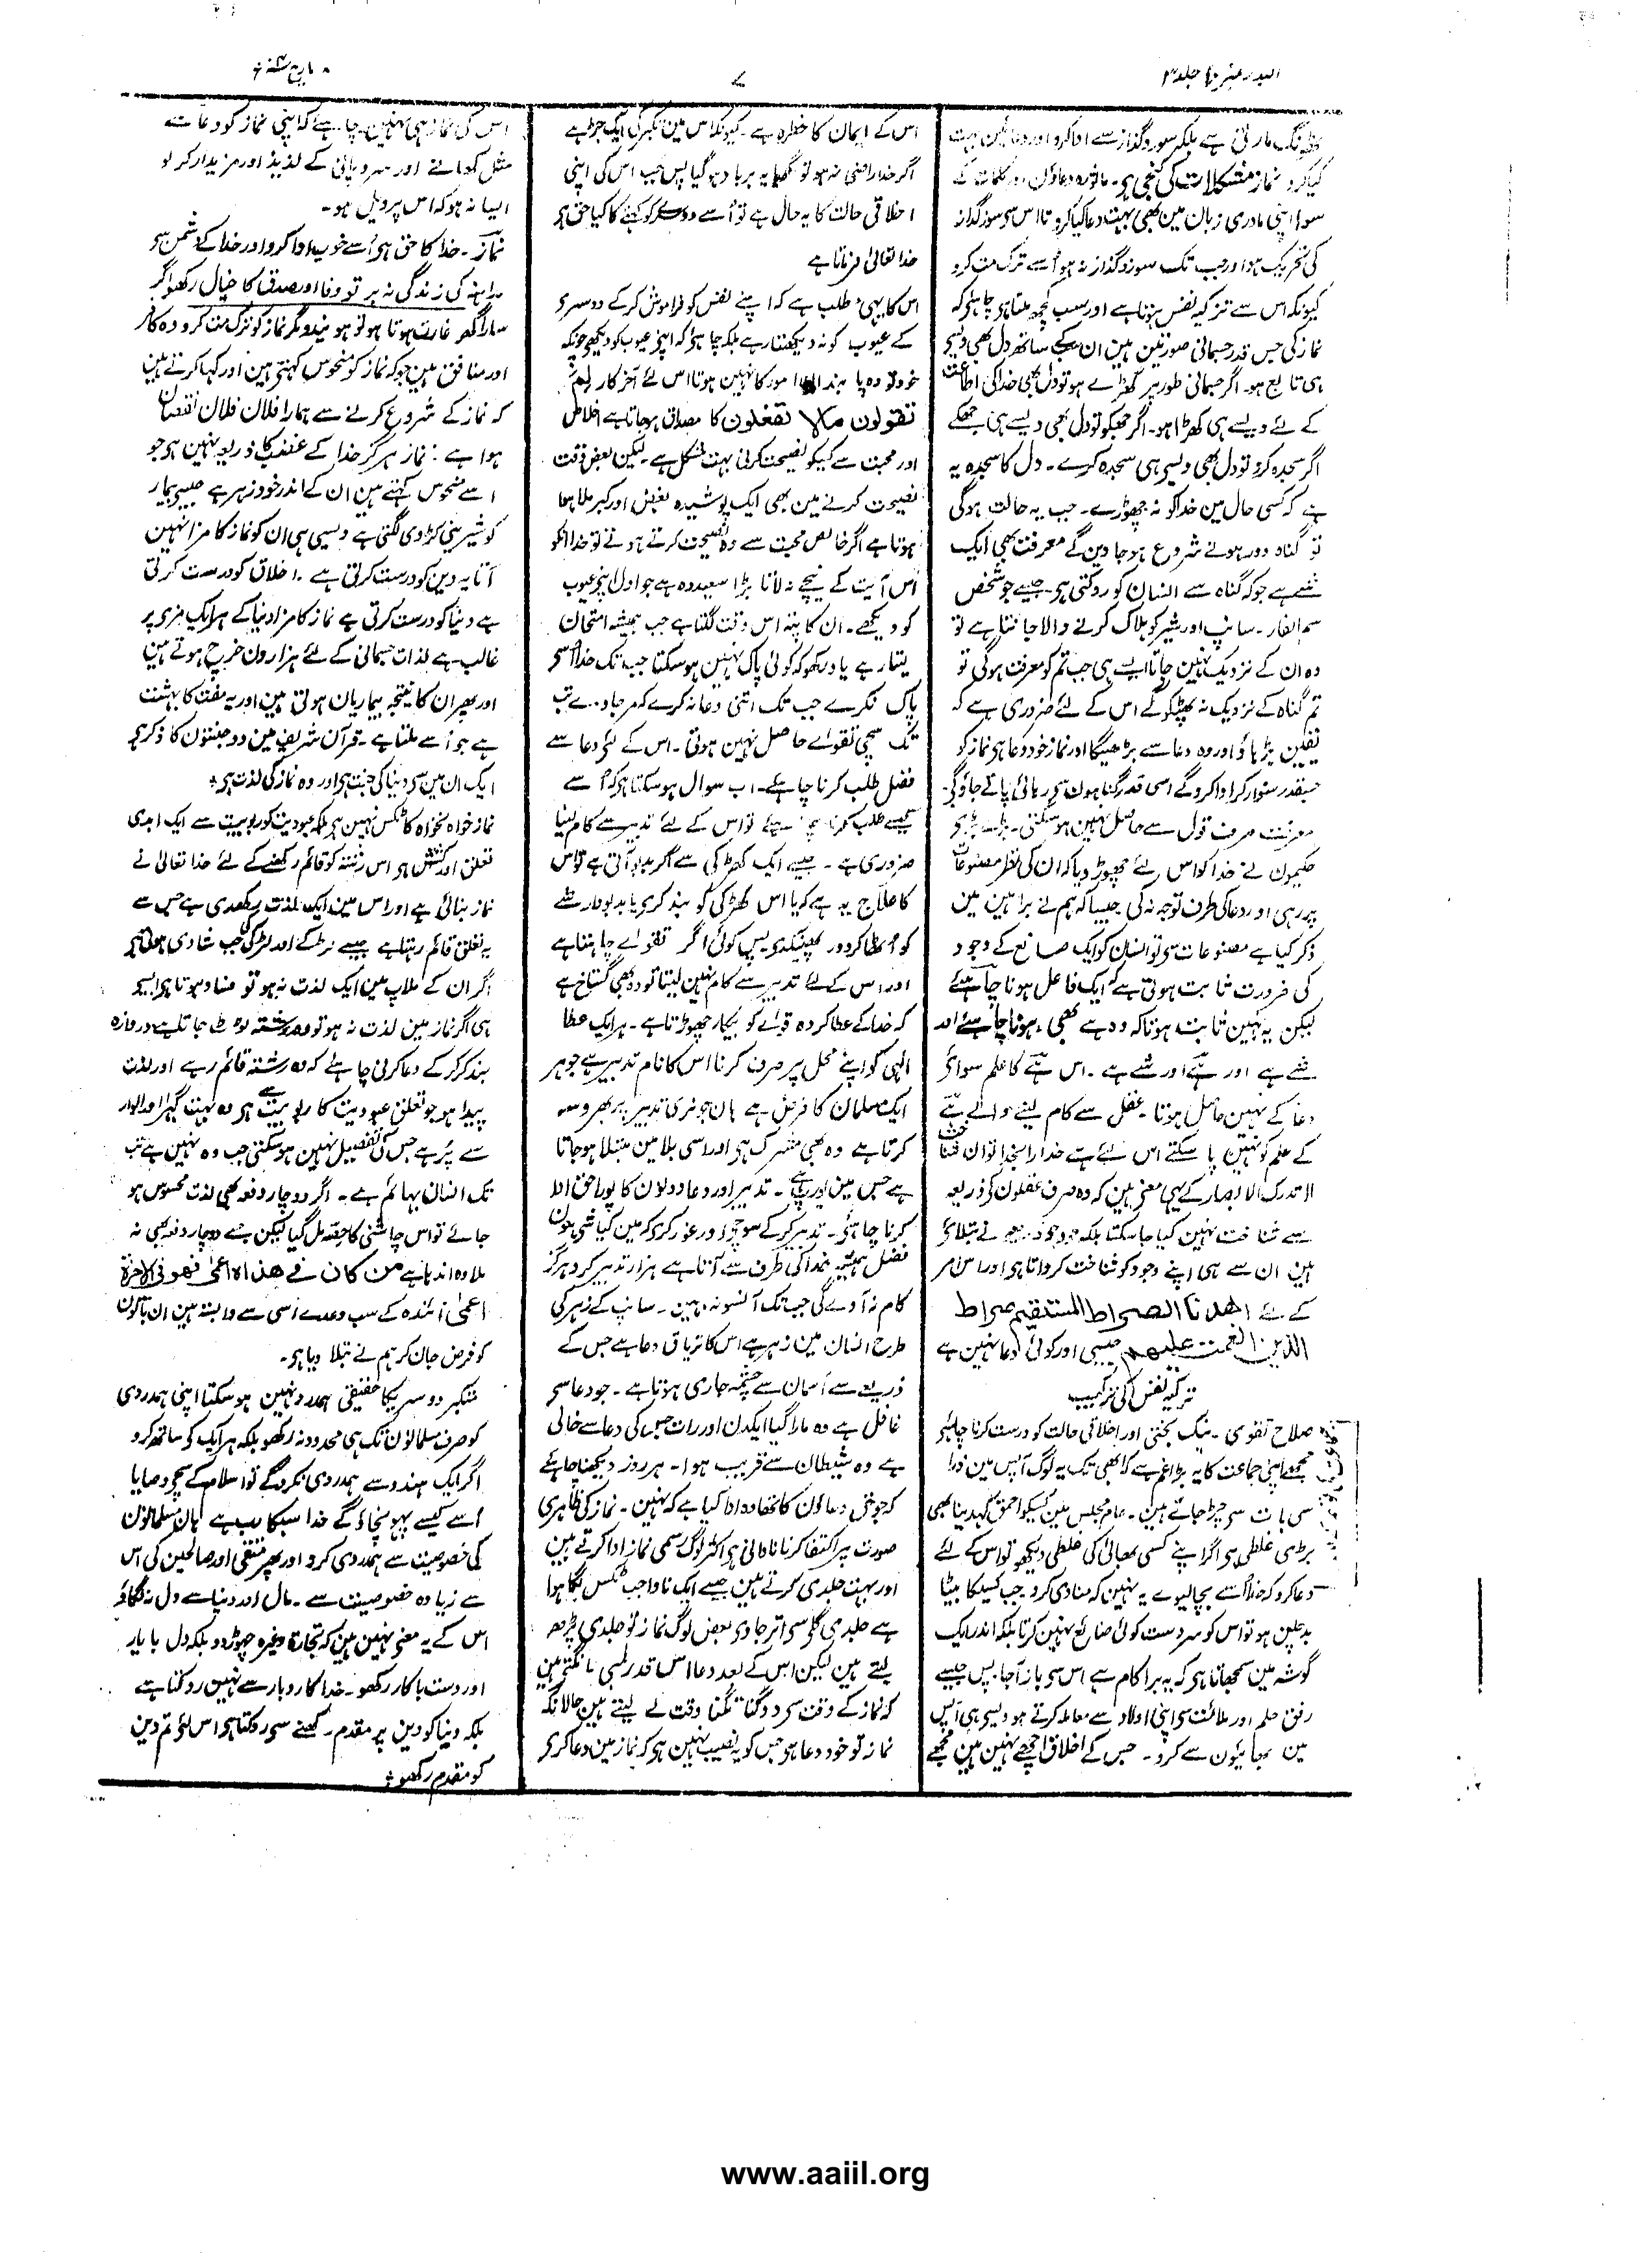 البدر نمبر ۱۰ جلد ۳
۷
۸ مارچ سنہ ۴ء
ٹھونگ مارنی ہے بلکہ سوز و گداز سے ادا کرو اور دعائین بہت
کیا کرو نماز مشکلات کی کنجی ہی۔ ماثورہ دعاؤں اور کلمات کے
سوا اپنی مادری زبان مین بھی بہت دعا کیا کرو تا اس سی سوز و گداز
کی تحریک ہو اور جب تک سوز و گداز نہ ہو اُسے ترک مت کرو
کیونکہ اس سے تزکیہ نفس ہوتا ہے اور سب کچھ ملتا ہی چاہئے کہ
نماز کی جس قدر جسمانی صورتین ہین ان سب کے ساتھ دل بھی ویسے
ہی تابع ہو۔ اگر جسمانی طور پر کھڑے ہو تو دل بھی خدا کی اطاعت
کے لئے ویسے ہی کھڑا ہو۔ اگر جھکو تو دل بھی ویسے ہی جھکے
اگر سجدہ کرو تو دل بھی ویسے ہی سجدہ کرے۔ دل کا سجدہ یہ
ہے کہ کسی حال مین خدا کو نہ چھوڑے۔ جب یہ حالت ہوگی
تو گناہ دور ہونے شروع ہو جاوین گے معرفت بھی ایک
شے ہے جو کہ گناہ سے انسان کو روکتی ہی۔ جیسے جو شخص
سم الفار۔ سانپ اور شیر کو ہلاک کرنے والا جانتا ہے تو
وہ ان کے نزدیک نہین جاتا ایسے ہی جب تم کو معرفت ہوگی تو
تم گناہ کے نزدیک نہ پھٹکو گے اس کے لئے ضروری ہے کہ
یقین بڑہاؤ اور وہ دعا سے بڑھیگا اور نماز خود دعا ہی نماز کو
جسقدر سنوار کر ادا کرو گے اسی قدر گناہون سی رہائی پاتے جاؤ گے۔
معرفت صرف قول سے حاصل نہین ہو سکتی۔ بڑے بڑے
حکیمون نے خدا کو اس لئے چھوڑ دیا کہ ان کی نظر مصنوعات
پر رہی اور دعا کی طرف توجہ نہ کی جیسا کہ ہم نے براہین مین
ذکر کیا ہے مصنوعات سی تو انسان کو ایک صانع کے وجود
کی ضرورت ثابت ہوتی ہے کہ ایک فاعل ہونا چاہئے
لیکن یہ نہین ثابت ہوتا کہ وہ ہے بھی۔ ہونا چاہئے اور
شے ہے اور ہے اور شے ہے۔ اس ہے کا علم سوائے
دعا کے نہین حاصل ہوتا۔ عقل سے کام لینے والے ہے
کے علم کو نہین پا سکتے اس لئے ہے خدا را بخدا توان شناخت
لا تدرکہ الابصار کے یہی معنی ہین کہ وہ صرف عقلون کے ذریعہ
سے شناخت نہین کیا جا سکتا بلکہ خود جو ذریعے نے بتلائے
ہین ان سے ہی اپنے وجود کو شناخت کرواتا ہی اور اس امر
کے لئے اهدنا الصراط المستقیم صراط
الذین انعمت علیهم جیسی اور کوئی دعا نہین ہے
تزکیہ نفس کی ترکیب
صلاح تقوی۔ نیک بختی اور اخلاقی حالت کو درست کرنا چاہئے
مجھے اپنی جماعت کا یہ بڑا غم ہے کہ ابھی تک یہ لوگ آپس مین ذرا
سی بات سی چڑ جاتے ہین۔ عام مجلس مین کسیکو احمق کہدینا بھی
بڑھی غلطی ہی اگر اپنے کسی بھائی کی غلطی دیکھو تو اس کے لئے
دعا کرو کہ خدا اُسے بچا لیوے یہ نہین کہ منادی کرو جب کسیکا بیٹا
بد چلن ہو تو اس کو سردست کوئی ضایع نہین کرتا بلکہ اندر ایک
گوشہ مین سمجھاتا ہی کہ یہ برا کام ہے اس سی باز آجا پس جیسے
رفق حلم اور ملائمت سی اپنی اولاد سے معاملہ کرتے ہو ویسے ہی آپس
مین بھائیون سے کرو۔ جس کے اخلاق اچھے نہین ہین مجھے
اس کے ایمان کا خطرہ ہے۔ کیونکہ اس مین تکبر کی ایک جڑ ہے
اگر خدا راضی نہ ہو تو گویا یہ برباد ہو گیا پس جب اس کی اپنی
اخلاقی حالت کا یہ حال ہے تو اُسے دوسرے کو کہنے کا کیا حق ہے
خدا تعالیٰ فرماتا ہے
اس کا یہی مطلب ہے کہ اپنے نفس کو فراموش کر کے دوسری
کے عیوب کو نہ دیکھتا رہے بلکہ چاہئے کہ اپنی عیوب کو دیکھے چونکہ
خود تو وہ پابند ان امور کا نہین ہوتا اس لئے آخر کار لِمَ
تقولون مالا تفعلون کا مصداق ہو جاتا ہے اخلاص
اور محبت سے کسیکو نصیحت کرنی بہت مشکل ہے۔ لیکن بعض وقت
نصیحت کرنے مین بھی ایک پوشیدہ بغض اور کبر ملا ہوا
ہوتا ہے اگر خالص محبت سے وہ نصیحت کرتے ہوتے تو خدا انکو
اس آیت کے نیچے نہ لاتا بڑا سعید وہ ہے جو اول اپنی عیوب
کو دیکھے۔ ان کا پتہ اس وقت لگتا ہے جب ہمیشہ امتحان
لیتا رہے یاد رکھو کہ کوئی پاک نہین ہو سکتا جب تک خدا اسے
پاک نکرے جب تک اتنی دعا نہ کرے کہ مر جاوے تب
تک سچی تقوے حاصل نہین ہوتی۔ اس کے لئے دعا سے
فضل طلب کرنا چاہئے۔ اب سوال ہو سکتا ہے کہ اُسے
کیسے طلب کرنا چاہئے تو اس کے لئے تدبیر سے کام لینا
ضروری ہے۔ جیسے ایک کھڑکی سے اگر بدبو آتی ہے تو اس
کا علاج یہ ہے کہ یا اس کھڑکی کو بند کرے یا بدبودار شے
کو اُٹھا کر دور پھینکدے پس کوئی اگر تقوے چاہتا ہے
اور اس کے لئے تدبیر سے کام نہین لیتا تو وہ بھی گستاخ ہے
کہ خدا کے عطا کردہ قوے کو بیکار چھوڑتا ہے۔ ہر ایک عطا
الٰہی کو اپنے محل پر صرف کرنا اس کا نام تدبیر ہے جو ہر
ایک مسلمان کا فرض ہے ہان جو نری تدبیر پر بھروسہ
کرتا ہے وہ بھی مشرک ہی اور اسی بلا مین مبتلا ہو جاتا
ہے جس مین یورپ ہے۔ تدبیر اور دعا دونون کا پورا حق ادا
کرنا چاہئے۔ تدبیر کر کے سوچے اور غور کرے کہ مین کیا شی ہون
فضل ہمیشہ خدا کی طرف سے آتا ہے ہزار تدبیر کرو ہرگز
کام نہ آوے گی جب تک آنسو نہ بہین۔ سانپ کے زہر کی
طرح انسان مین زہر ہے اس کا تریاق دعا ہے جس کے
ذریعے سے آسمان سے چشمہ جاری ہوتا ہے۔ جو دعا سی
غافل ہے وہ مارا گیا ایکدن اور رات جس کی دعا سے خالی
ہے وہ شیطان سے قریب ہوا۔ ہر روز دیکھنا چاہئے
کہ جو حق دعاؤن کا تھا وہ ادا کیا ہے کہ نہین۔ نماز کی ظاہری
صورت پر اکتفا کرنا نادانی ہی اکثر لوگ رسمی نماز ادا کرتے ہین
اور بہت جلدی کرتے ہین جیسے ایک ناواجب ٹکس لگا ہوا
ہے جلدی گلے سی اتر جاوے بعض لوگ نماز تو جلدی پڑھ
لیتے ہین لیکن اس کے بعد دعا اس قدر لمبی مانگتے ہین
کہ نماز کے وقت سی دوگنا تگنا وقت لے لیتے ہین حالانکہ
نماز تو خود دعا ہی جس کو یہ نصیب نہین ہی کہ نماز مین دعا کرے
اس کی نماز ہی نہین۔ چاہئے کہ اپنی نماز کو دعا سے
مثل کھانے اور سرد پانی کے لذیذ اور مزیدار کر لو
ایسا نہ ہو کہ اس پر ویل ہو۔
نماز۔ خدا کا حق ہی اُسے خوب ادا کرو اور خدا کے دشمن سی
مداہنہ کی زندگی نہ برتو وفا اور صدق کا خیال رکھو اگر
سارا گھر غارت ہوتا ہو تو ہونیدو مگر نماز کو ترک مت کرو وہ کافر
اور منافق ہین جو کہ نماز کو منحوس کہتے ہین اور کہا کرتے ہین
کہ نماز کے شروع کرنے سے ہمارا فلان فلان نقصان
ہوا ہے۔ نماز ہرگز خدا کے غضب کا ذریعہ نہین ہی جو
اسے منحوس کہتے ہین ان کے اندر خود زہر ہے جیسے بیمار
کو شیرینی کڑوی لگتی ہے ویسے ہی ان کو نماز کا مزا نہین
آتا یہ دین کو درست کرتی ہے۔ اخلاق کو درست کرتی
ہے دنیا کو درست کرتی ہے نماز کا مزا دنیا کے ہر ایک مزی پر
غالب ہے لذات جسمانی کے لئے ہزارون خرچ ہوتے ہین
اور پھر ان کا نتیجہ بیماریان ہوتی ہین اور یہ مفت کا بہشت
ہے جو اُسے ملتا ہے۔ قرآن شریف مین دو جنتون کا ذکر ہی
ایک ان مین سی دنیا کی جنت ہی اور وہ نماز کی لذت ہی۔
نماز خواہ نخواہ کا ٹکس نہین ہی بلکہ عبودیت کو ربوبیت سے ایک ابدی
تعلق اور کشش ہی اس رشتہ کو قائم رکھنے کے لئے خدا تعالیٰ نے
نماز بنائی ہے اور اس مین ایک لذت رکھدی ہے جس سے
یہ تعلق قائم رہتا ہے جیسے لڑکے اور لڑکی کی جب شادی ہوتی ہی
اگر ان کے ملاپ مین ایک لذت نہ ہو تو فساد ہوتا ہی ایسے
ہی اگر نماز مین لذت نہ ہو تو وہ رشتہ ٹوٹ جاتا ہے دروازہ
بند کر کر کے دعا کرنی چاہئے کہ وہ رشتہ قائم رہے اور لذت
پیدا ہو جو تعلق عبودیت کا ربوبیت سے ہی وہ بہت گہرا اور انوار
سے پُر ہے جس کی تفصیل نہین ہو سکتی جب وہ نہین ہے تب
تک انسان بہائم ہے۔ اگر دو چار دفعہ بھی لذت محسوس ہو
جائے تو اس چاشنی کا حصہ مل گیا لیکن جسے دو چار دفعہ بھی نہ
ملا وہ اندہا ہے من کان فے هذاه اعمٰی فهو فی الاخرة
اعمیٰ آئندہ کے سب وعدے اسی سے وابستہ ہین ان باتون
کو فرض جان کر ہم نے بتلا دیا ہی۔
متکبر دوسریکا حقیقی ہمدرد نہین ہو سکتا اپنی ہمدردی
کو صرف مسلمانون تک ہی محدود نہ رکھو بلکہ ہر ایک کے ساتھ کرو
اگر ایک ہندو سے ہمدردی نکرو گے تو اسلام کے سچے وصایا
اُسے کیسے پہونچاؤ گے خدا سبکا رب ہے ہان مسلمانون
کی خصوصیت سے ہمدردی کرو اور پھر متقی اور صالحین کی اس
سے زیادہ خصوصیت سے۔ مال اور دنیا سے دل نہ لگاؤ
اس کے یہ معنی نہین ہین کہ تجارت وغیرہ چھوڑ دو بلکہ دل با یار
اور دست با کار رکھو۔ خدا کاروبار سے نہین روکتا ہے
بلکہ دنیا کو دین پر مقدم رکھنے سی روکتا ہی اس لئے تم دین
کو مقدم رکھو۔
www.aaiil.org